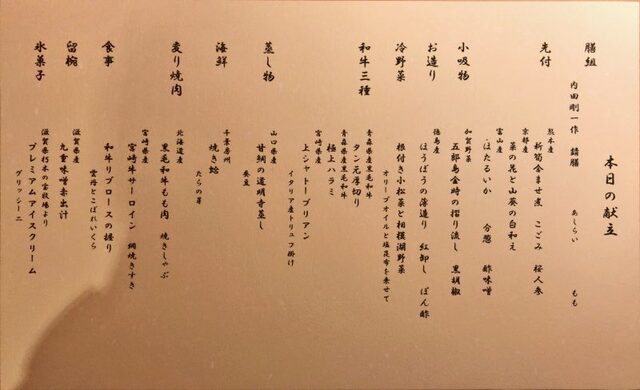 本日の献立
膳組
内田剛一作 錆膳 あしらい もも
先付
熊本産
新筍含ませ煮 こごみ 桜人参
京都産
菜の花と山葵の白和え
富山産
ほたるいか 分葱 酢味噌
小吸物
加賀野菜
五郎島金時の摺り流し 黒胡椒
お造り
徳島産
ほうぼうの薄造り 紅卸し ぽん酢
冷野菜
根付き小松菜と相模湖野菜
オリーブオイルと塩昆布を乗せて
和牛三種
青森県産黒毛和牛
タン元厚切り
青森県産黒毛和牛
極上ハラミ
宮崎県産
上シャトーブリアン
イタリア産トリュフ掛け
蒸し物
山口県産
甘鯛の道明寺蒸し
蚕豆
海鮮
千葉房州
焼き蛤
たらの芽
変り焼肉
北海道産
黒毛和牛もも肉 焼きしゃぶ
宮崎県産
宮崎牛サーロイン 網焼きすき
食事
和牛リブロースの握り
雲丹とこぼれいくら
留椀
滋賀県産
九重味噌赤出汁
氷菓子
滋賀県朽木の宝牧場より
プレミアムアイスクリーム
グリッシーニ